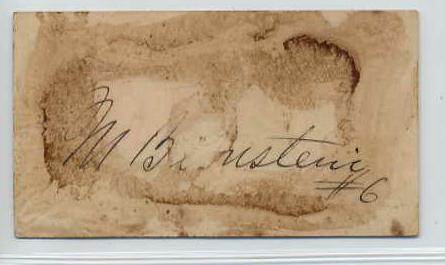 M Bernstein
#6